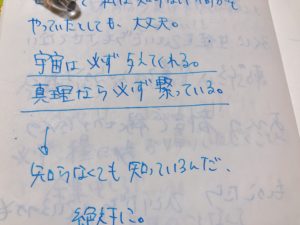 やっていたとしても、大丈夫。
宇宙は必ず与えてくれる。
真理なら必ず繋っている。
↓
知らなくても知っているんだ、
絶対に。